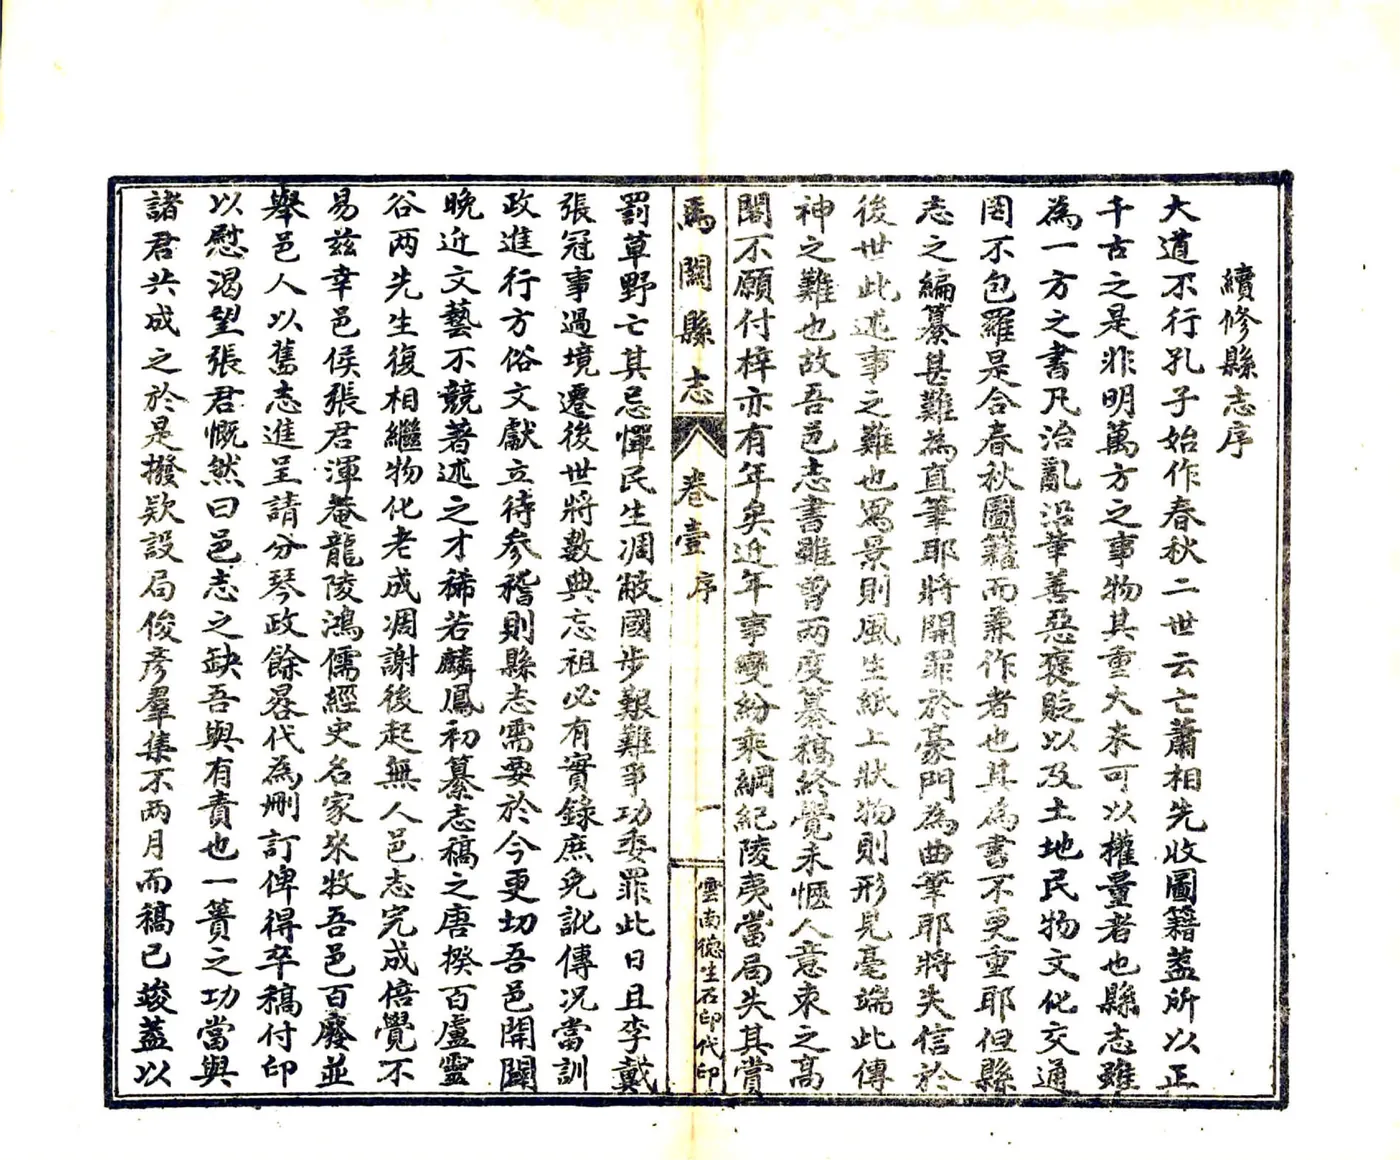 續修縣志序
大道不行孔子始作春秋二世云亡蕭相先收圖籍蓋所以正
千古之是非明萬方之事物其重大未可以權量者也縣志雖
為一方之書凡治亂沿革善惡褒貶以及土地民物文化交通
罔不包羅是合春秋圖籍而兼作者也其為書不更重耶但縣
志之編纂甚難為直筆耶將開罪於豪門為曲筆耶將失信於
後世此述事之難也寫景則風生紙上狀物則形見毫端此傳
神之難也故吾邑志書雖曾兩度纂稿終覺未愜人意束之高
閣不願付梓亦有年矣近年事變紛乘綱紀陵夷當局失其賞
馬關縣志
卷壹
序
一
雲南德生石印代印
罰草野亡其忌憚民生凋敝國步艱難事功委罪此日且李戴
張冠事過境遷後世將數典忘祖必有實錄庶免訛傳況當訓
政進行方俗文獻立待參稽則縣志需要於今更切吾邑開闢
晚近文藝不競著述之才稀若麟鳳初纂志稿之唐揆百盧靈
谷兩先生復相繼物化老成凋謝後起無人邑志完成倍覺不
易茲幸邑侯張君渾菴龍陵鴻儒經史名家來牧吾邑百廢並
舉邑人以舊志進呈請分琴政餘晷代為刪訂俾得卒稿付印
以慰渴望張君慨然曰邑志之缺吾與有責也一簣之功當與
諸君共成之於是撥款設局俊彥羣集不兩月而稿已竣蓋以